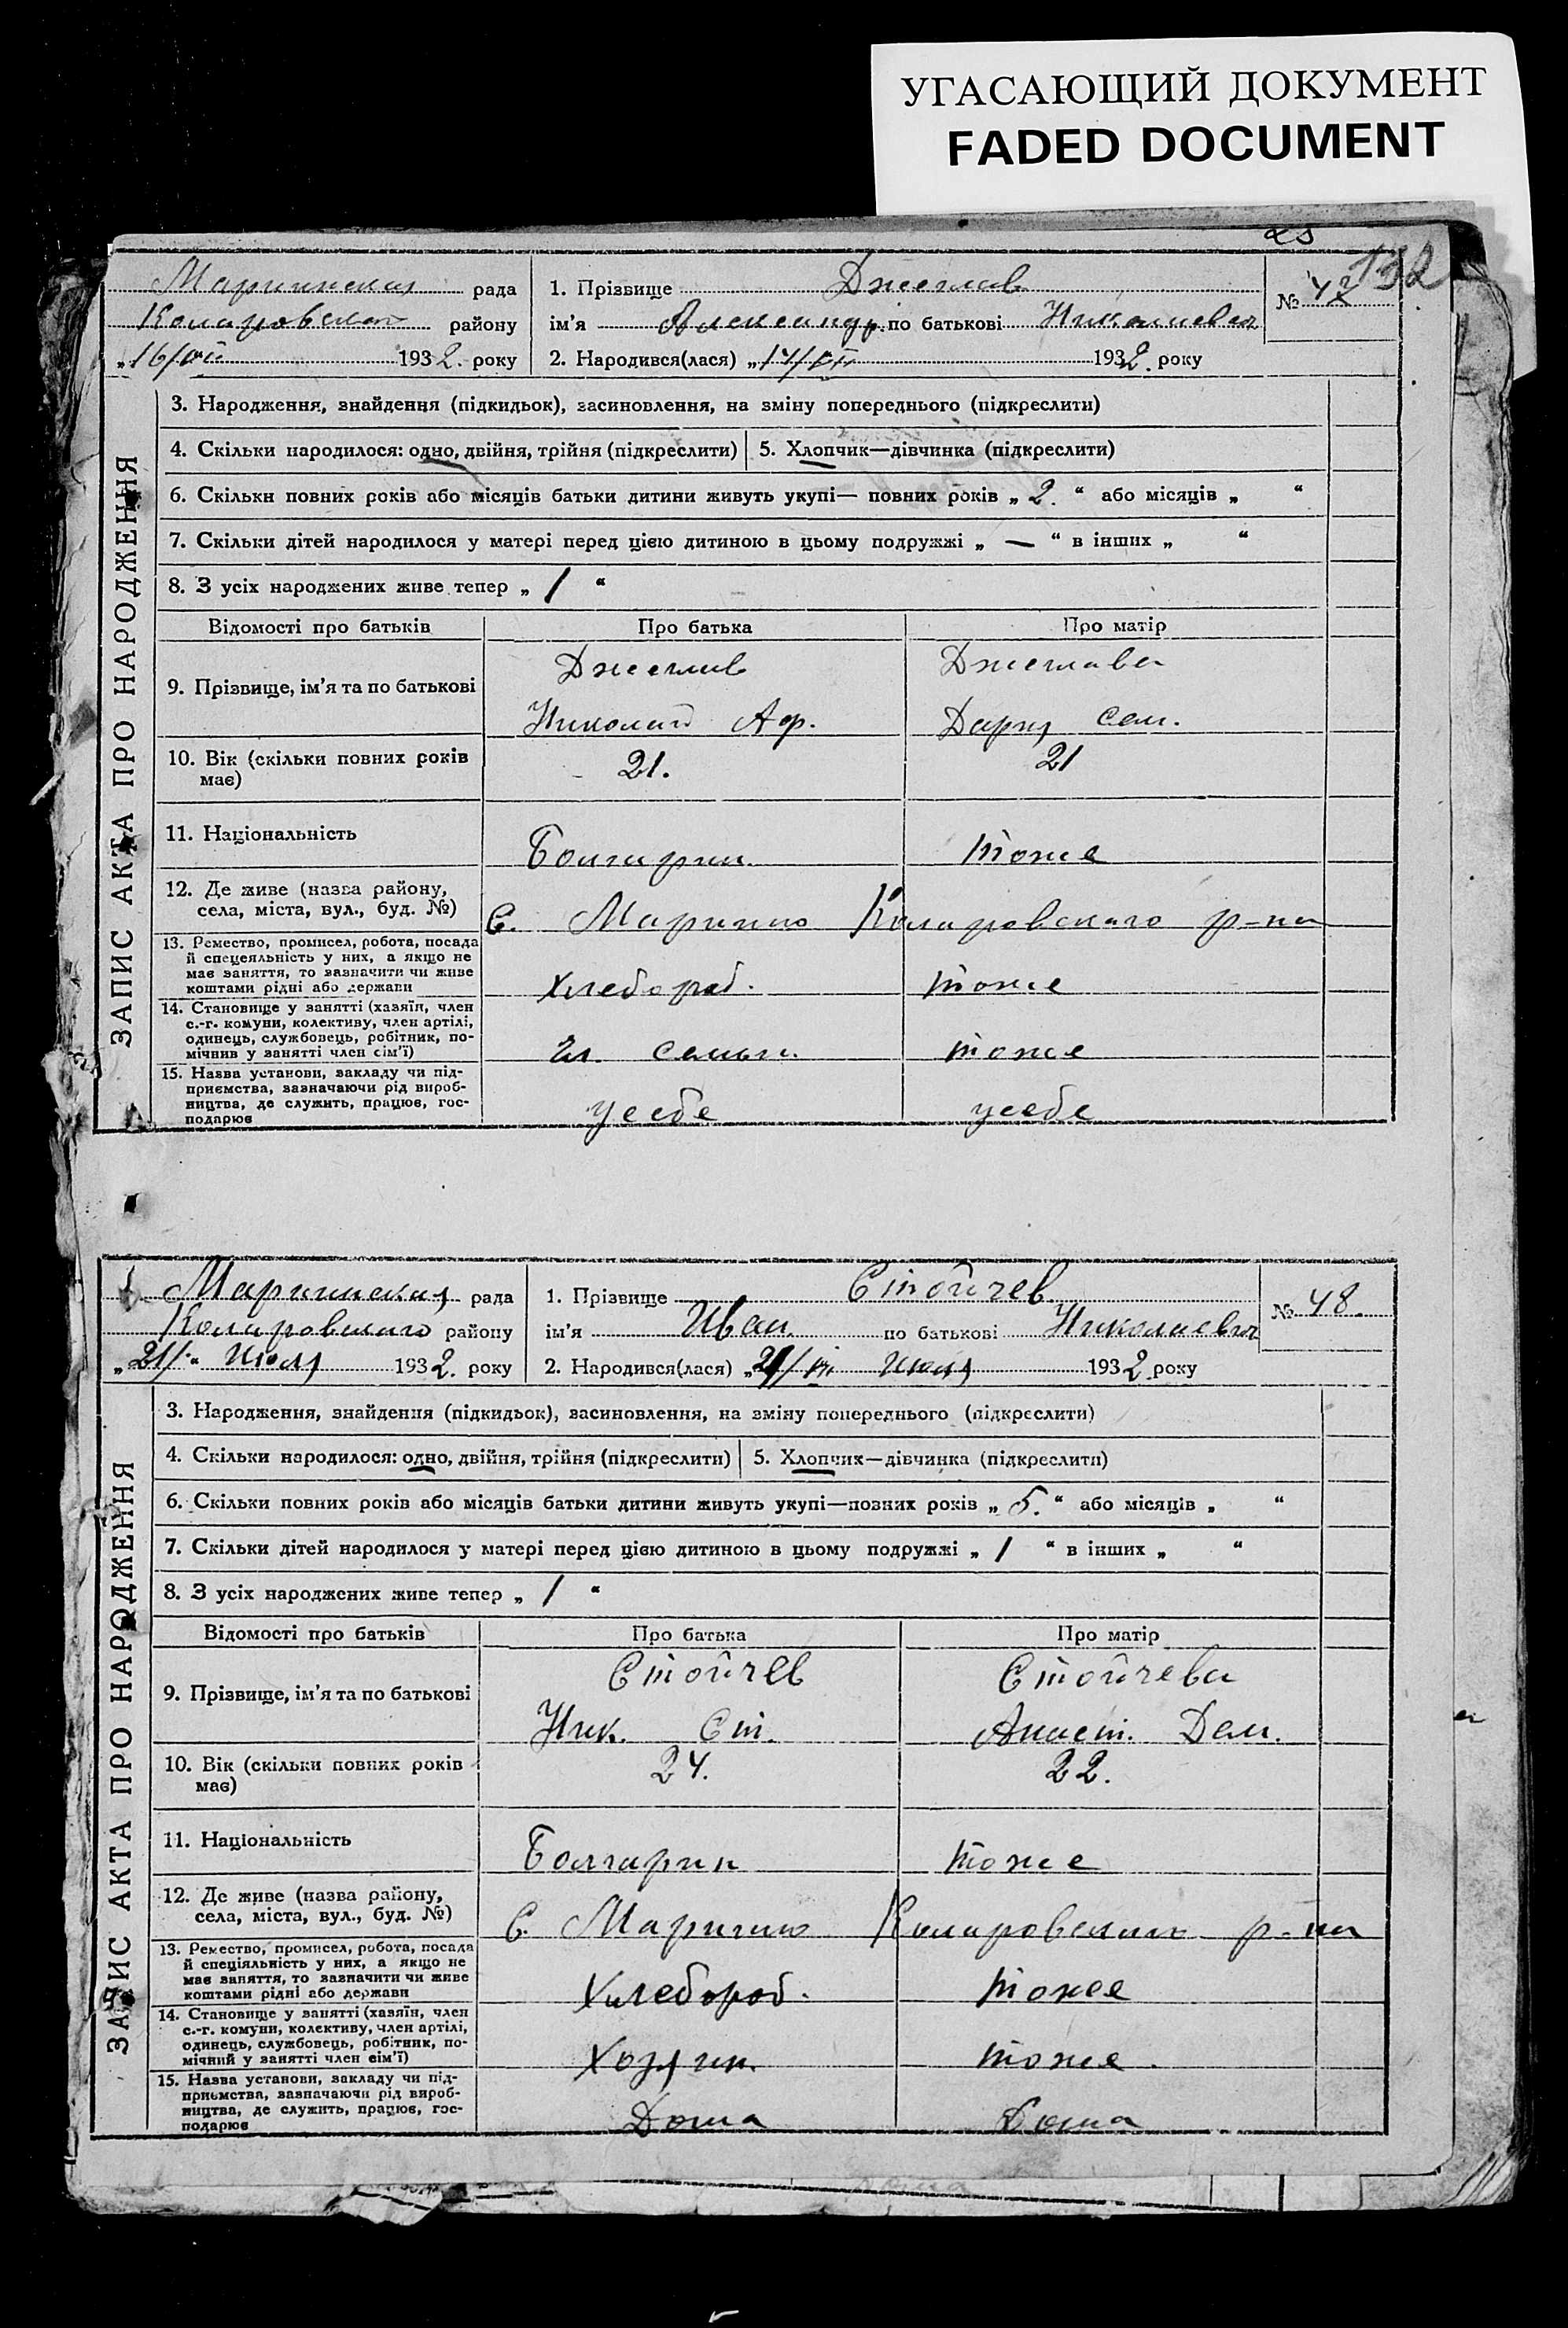 УГАСАЮЩИЙ ДОКУМЕНТ
FADED DOCUMENT
132
Мариинская рада
Коларовского району
„16/VII 1932. року
1. Прізвище Джеглав
ім'я Александр по батькові Николаевич
2. Народився(лася) „14/VII 1932. року
№ 47
ЗАПИС АКТА ПРО НАРОДЖЕННЯ
3. Народження, знайдення (підкидьок), засиновлення, на зміну попереднього (підкреслити)
4. Скільки народилося: одно, двійня, трійня (підкреслити) 5. Хлопчик—дівчинка (підкреслити)
6. Скільки повних років або місяців батьки дитини живуть укупі— повних років „ 2. “ або місяців „ “
7. Скільки дітей народилося у матері перед цією дитиною в цьому подружжі „ — “ в інших „ “
8. З усіх народжених живе тепер „ 1 “
Відомості про батьків Про батька Про матір
9. Прізвище, ім'я та по батькові
Джеглав Джеглава
Николай Аф. Дария Сем.
10. Вік (скільки повних років
має)
21. 21
11. Національність
Болгарин тоже
12. Де живе (назва району,
села, міста, вул., буд. №)
С. Марино Коларовского р-на
13. Ремество, промисел, робота, посада
й спецеяльність у них, а якщо не
має заняття, то зазначити чи живе
коштами рідні або держави
Хлебороб. тоже
14. Становище у занятті (хазяїн, член
с.-г. комуни, колективу, член артілі,
одинець, службовець, робітник, по-
мічнив у занятті член сім'ї)
Чл. семьи. тоже
15. Назва установи, закладу чи під-
приємства, зазначаючи рід вироб-
ництва, де служить, працює, гос-
подарює
у себе у себе
Мариинская рада
Коларовского району
„21/ Июля 1932. року
1. Прізвище Стойчев
ім'я Иван. по батькові Николаевич
2. Народився(лася) „ Июля 1932 року
№ 48.
ЗАПИС АКТА ПРО НАРОДЖЕННЯ
3. Народження, знайдення (підкидьок), засиновлення, на зміну попереднього (підкреслити)
4. Скільки народилося: одно, двійня, трійня (підкреслити) 5. Хлопчик—дівчинка (підкреслити)
6. Скільки повних років або місяців батьки дитини живуть укупі—повних років „ 5. “ або місяців „ “
7. Скільки дітей народилося у матері перед цією дитиною в цьому подружжі „ 1 “ в інших „ “
8. З усіх народжених живе тепер „ 1 “
Відомості про батьків Про батька Про матір
9. Прізвище, ім'я та по батькові
Стойчев Стойчева
Ник. Ст. Анаст. Дем.
10. Вік (скільки повних років
має)
24. 22.
11. Національність
Болгарин тоже
12. Де живе (назва району,
села, міста, вул., буд. №)
С. Марино Коларовского р-на
13. Ремество, промисел, робота, посада
й спеціяльність у них, а якщо не
має заняття, то зазначити чи живе
коштами рідні або держави
Хлебороб. тоже
14. Становище у занятті (хазяїн, член
с.-г. комуни, колективу, член артілі,
одинець, службовець, робітник, по-
мічний у занятті член сім'ї)
Хозяин. тоже
15. Назва установи, закладу чи під-
приємства, зазначаючи рід вироб-
ництва, де служить, працює, гос-
подарює
Дома Дома